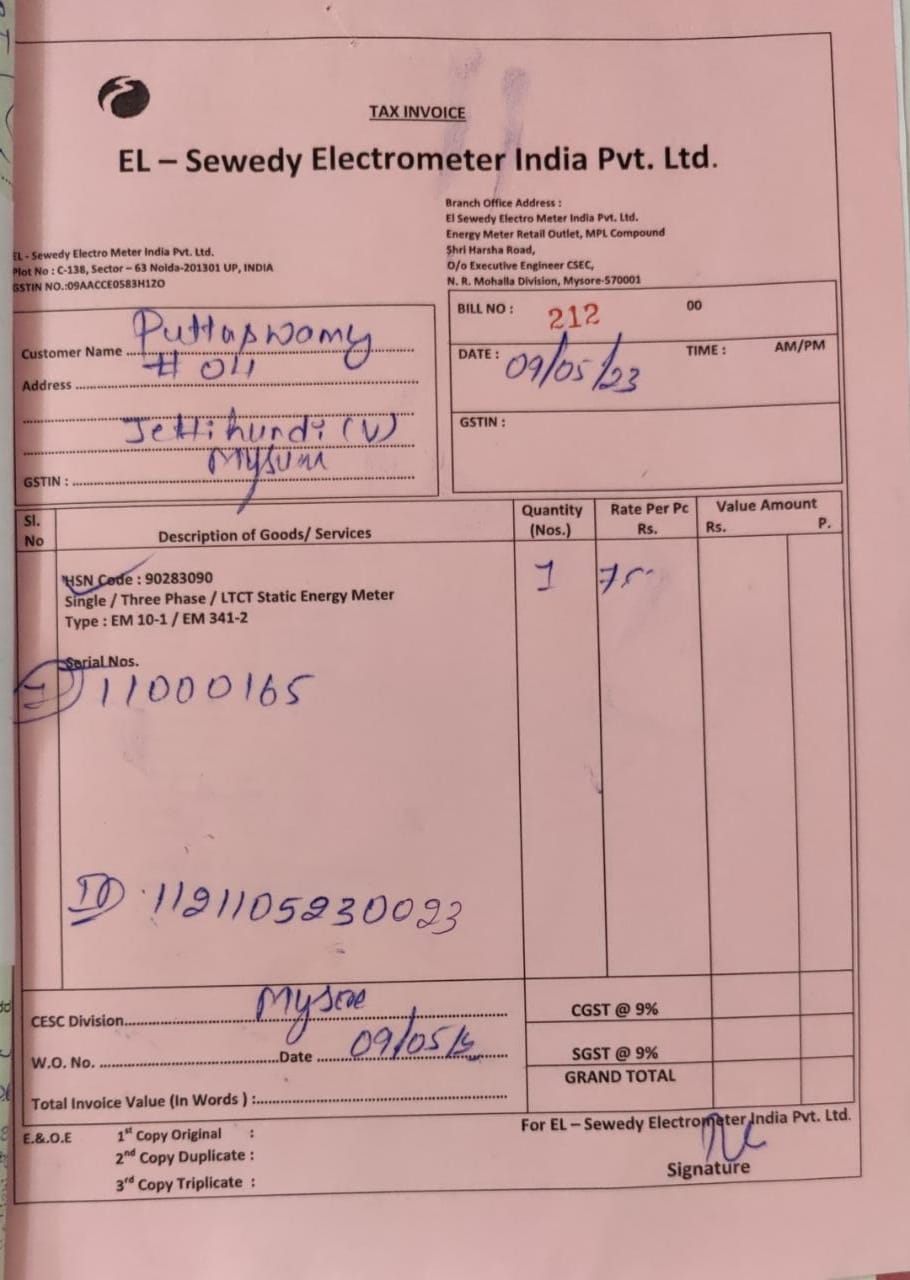 TAX INVOICE
EL – Sewedy Electrometer India Pvt. Ltd.
EL - Sewedy Electro Meter India Pvt. Ltd.
Plot No : C-138, Sector – 63 Noida-201301 UP, INDIA
GSTIN NO.:09AACCE0583H1ZO
Branch Office Address :
El Sewedy Electro Meter India Pvt. Ltd.
Energy Meter Retail Outlet, MPL Compound
Shri Harsha Road,
O/o Executive Engineer CSEC,
N. R. Mohalla Division, Mysore-570001
Customer Name Puttapwomy
Address # 011
Jettihundi (V)
GSTIN :
BILL NO : 212 00
DATE : 09/05/23 TIME : AM/PM
GSTIN :
Sl. No Description of Goods/ Services Quantity (Nos.) Rate Per Pc Rs. Value Amount Rs. P.
HSN Code : 90283090 1
Single / Three Phase / LTCT Static Energy Meter
Type : EM 10-1 / EM 341-2
Serial Nos.
11000165
ID 1121105230023
CESC Division Mysore
W.O. No. Date 09/05/
Total Invoice Value (In Words ) :
CGST @ 9%
SGST @ 9%
GRAND TOTAL
E.&.O.E 1st Copy Original :
2nd Copy Duplicate :
3rd Copy Triplicate :
For EL – Sewedy Electrometer India Pvt. Ltd.
Signature